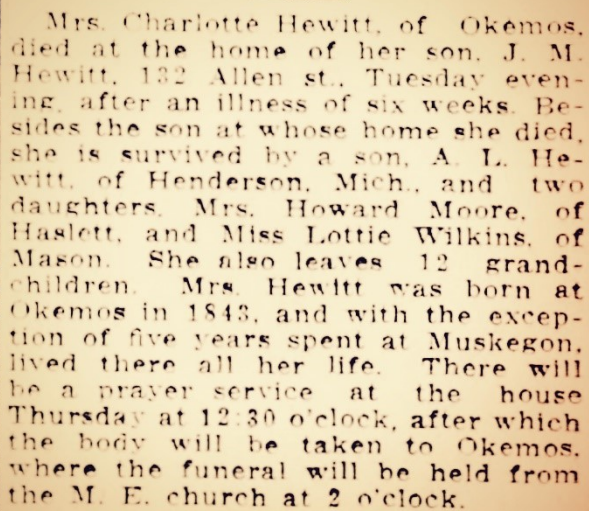 Mrs. Charlotte Hewitt, of Okemos,
died at the home of her son, J. M.
Hewitt, 132 Allen st., Tuesday even-
ing, after an illness of six weeks. Be-
sides the son at whose home she died,
she is survived by a son, A. L. He-
witt, of Henderson, Mich., and two
daughters, Mrs. Howard Moore, of
Haslett, and Miss Lottie Wilkins, of
Mason. She also leaves 12 grand-
children. Mrs. Hewitt was born at
Okemos in 1843, and with the excep-
tion of five years spent at Muskegon,
lived there all her life. There will
be a prayer service at the house
Thursday at 12:30 o'clock, after which
the body will be taken to Okemos,
where the funeral will be held from
the M. E. church at 2 o'clock.